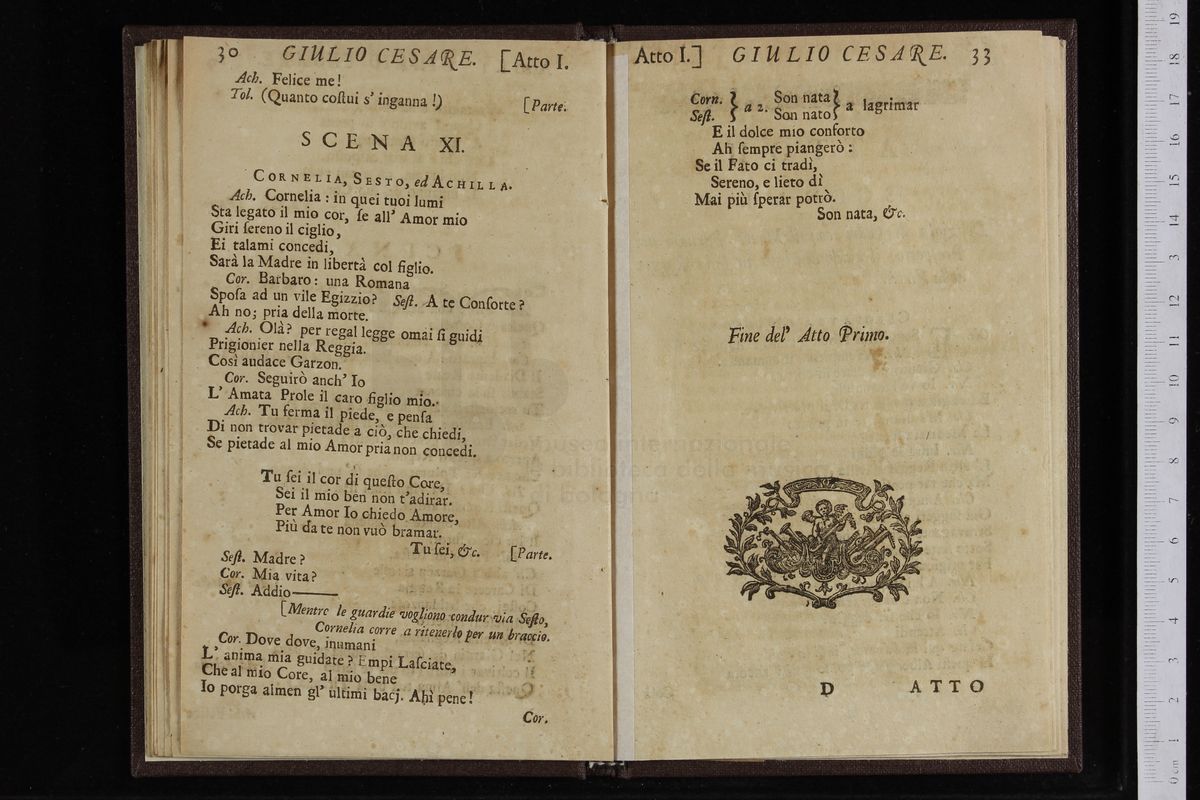 30 GIULIO CESARE. [Atto I.
Ach. Felice me!
Tol. (Quanto coſtui s' inganna!) [Parte.
SCENA XI.
CORNELIA, SESTO, ed ACHILLA.
Ach. Cornelia: in quei tuoi lumi
Sta legato il mio cor, ſe all' Amor mio
Giri ſereno il ciglio,
Ei talami concedi,
Sarà la Madre in libertà col figlio.
Cor. Barbaro: una Romana
Spoſa ad un vile Egizzio? Seſt. A te Conſorte?
Ah no; pria della morte.
Ach. Olà? per regal legge omai ſi guidi
Prigionier nella Reggia.
Così audace Garzon.
Cor. Seguirò anch' Io
L' Amata Prole il caro figlio mio.
Ach. Tu ferma il piede, e penſa
Di non trovar pietade a ciò, che chiedi,
Se pietade al mio Amor pria non concedi.
Tu ſei il cor di queſto Core,
Sei il mio ben non t'adirar.
Per Amor Io chiedo Amore,
Più da te non vuò bramar.
Tu ſei, &c. [Parte.
Seſt. Madre?
Cor. Mia vita?
Seſt. Addio———
[Mentre le guardie vogliono condur via Seſto,
Cornelia corre a ritenerlo per un braccio.
Cor. Dove dove, inumani
L' anima mia guidate? Empi Laſciate,
Che al mio Core, al mio bene
Io porga almen gl' ultimi bacj. Ahì pene!
Cor.
Atto I.] GIULIO CESARE. 33
Corn. } a 2. Son nata } a lagrimar
Seſt. } Son nato }
E il dolce mio conforto
Ah ſempre piangerò:
Se il Fato ci tradì,
Sereno, e lieto dì
Mai più ſperar potrò.
Son nata, &c.
Fine del' Atto Primo.
D ATTO
museo internazionale
biblioteca della musica
bologna
0 cm 1 2 3 4 5 6 7 8 9 10 11 12 13 14 15 16 17 18 19